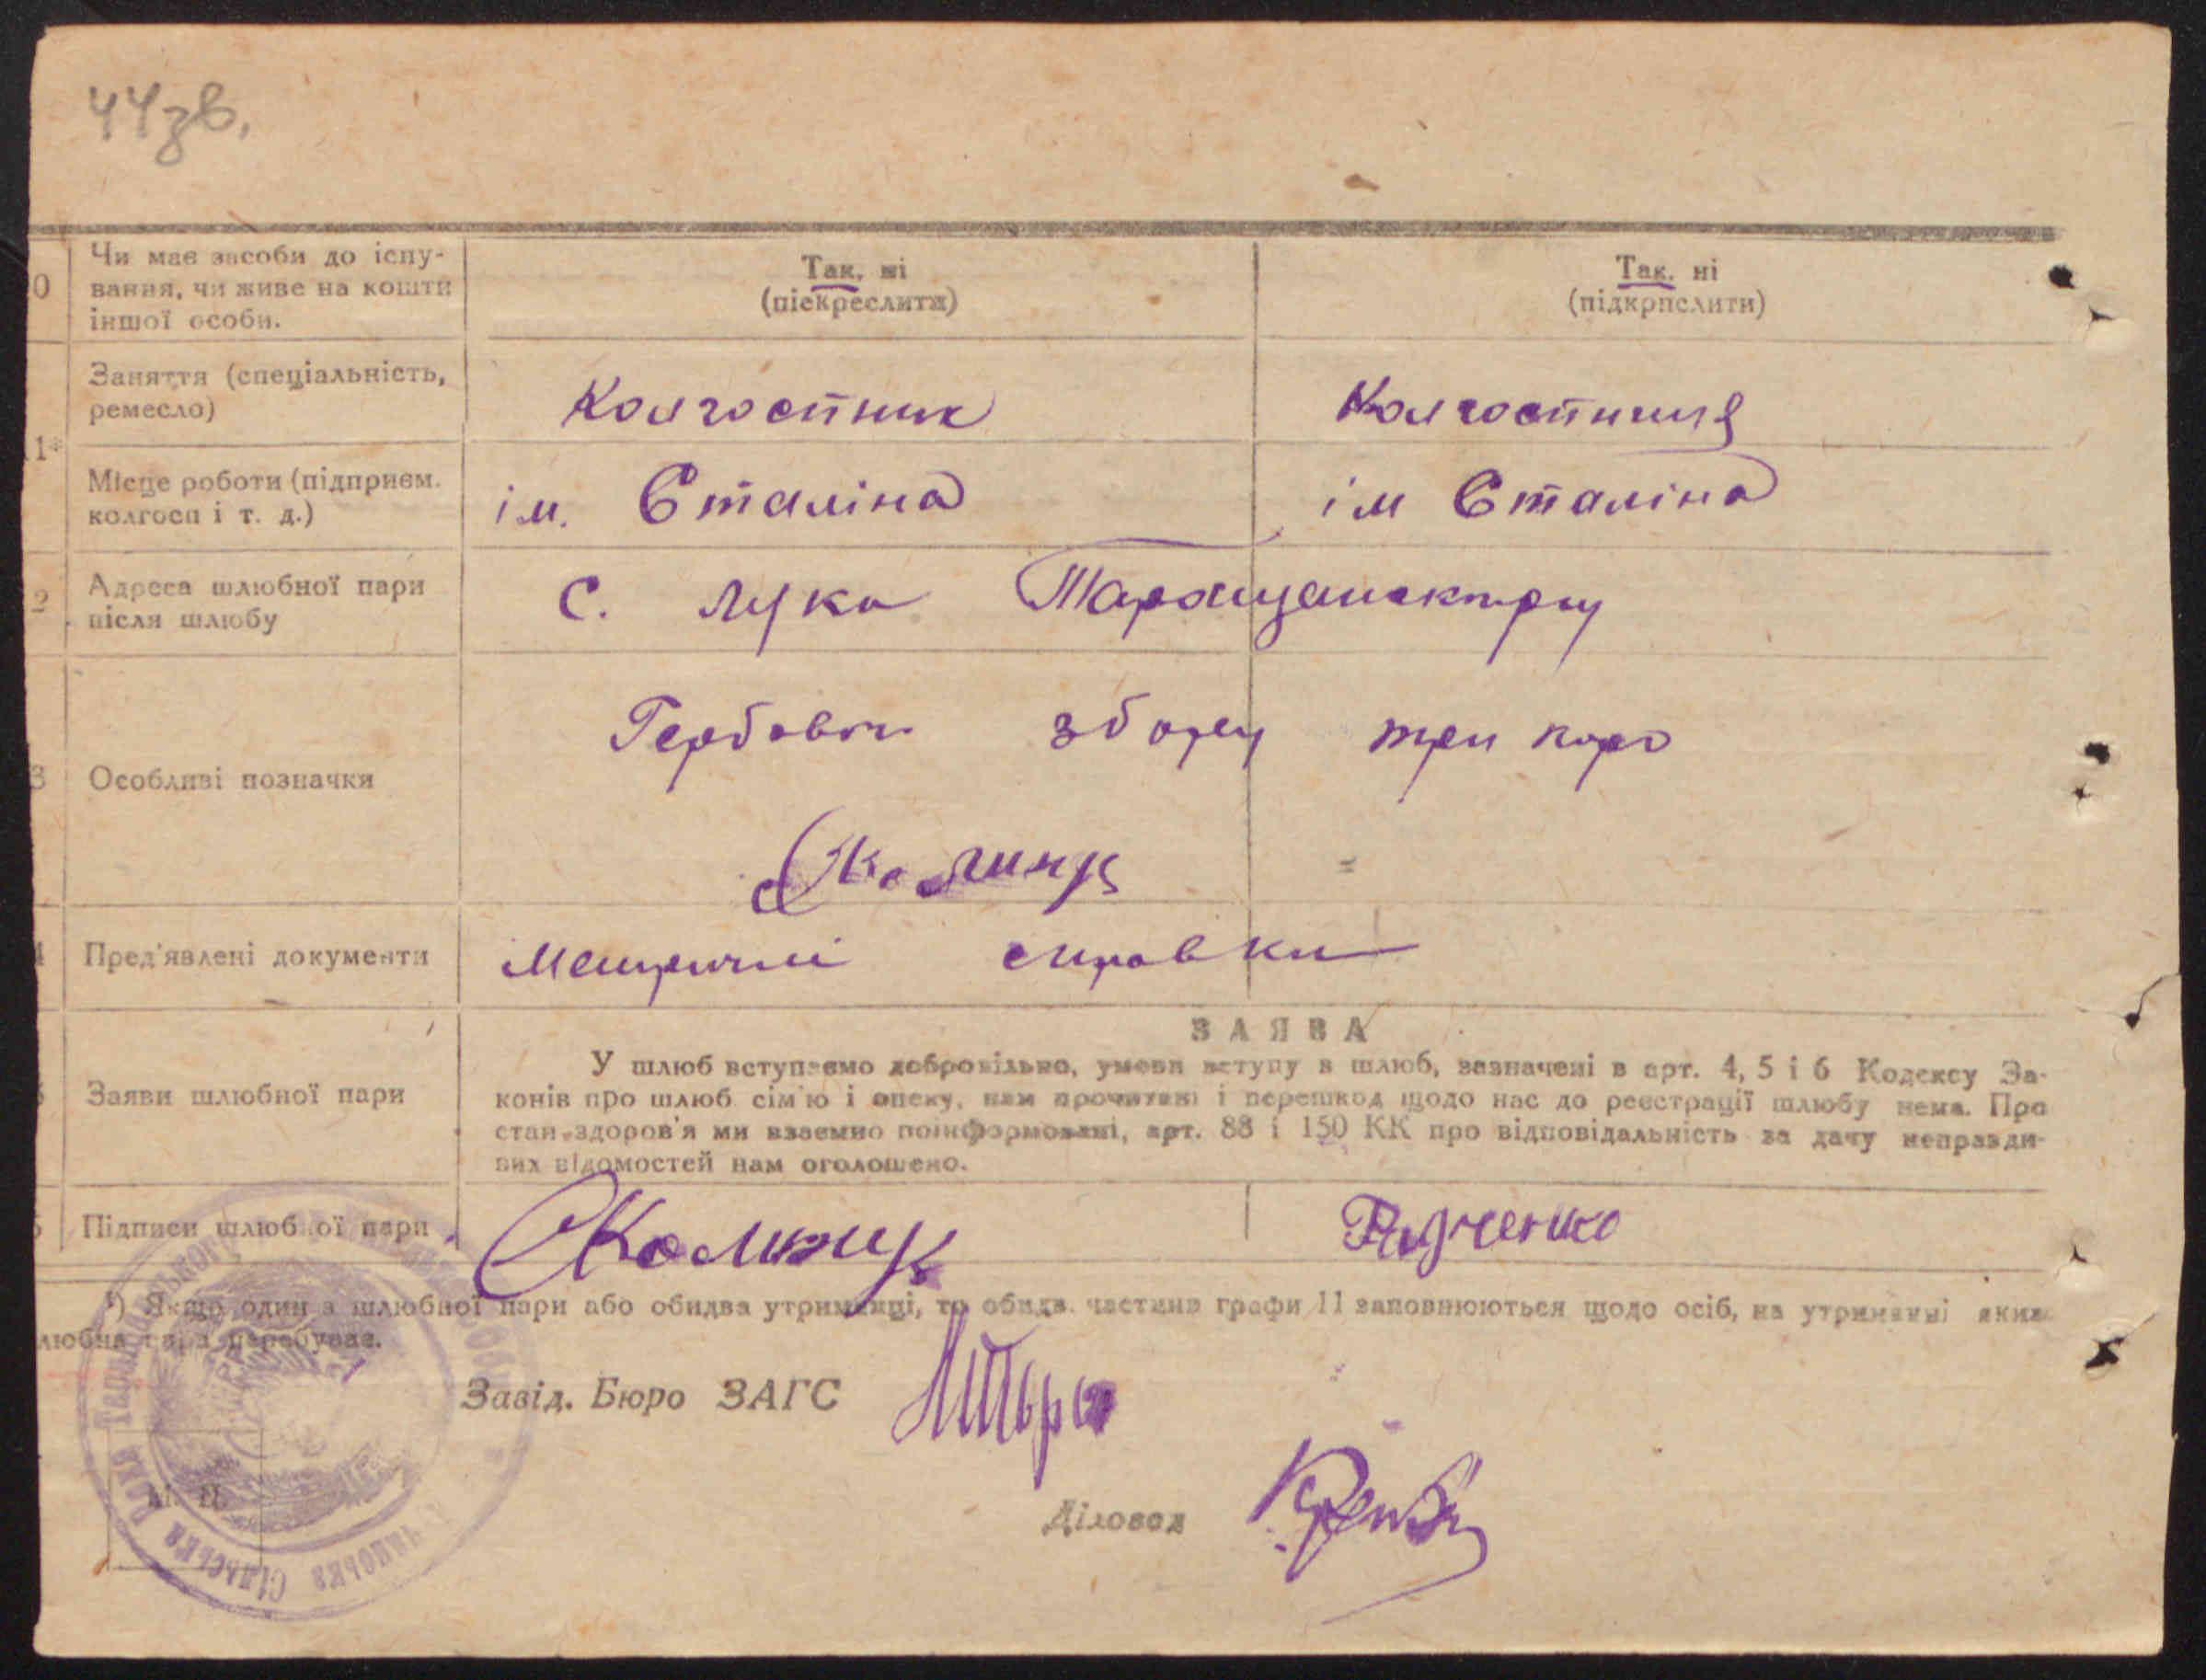 44зв.
0 Чи має засоби до існу-
вання, чи живе на кошти
іншої особи.
Так, ні
(піекреслити)
Так. ні
(підкрпслити)
Заняття (спеціальність,
ремесло)
Колгоспник
Колгоспниця
1*
Місце роботи (підприєм.
колгосп і т. д.)
ім. Сталіна
ім Сталіна
2 Адреса шлюбної пари
після шлюбу
С. Лука Таращанскпру
3 Особливі позначки
Гербовог збору три карб
4 Пред'явлені документи
Метричні справки
ЗАЯВА
Заяви шлюбної пари
У шлюб вступаємо добровільно, умови вступу в шлюб, зазначені в арт. 4, 5 і 6 Кодексу За-
конів про шлюб сім'ю і опеку, нам прочитані і перешкод щодо нас до реєстрації шлюбу нема. Про
стан здоров'я ми взаємно поінформовані, арт. 88 і 150 КК про відповідальність за дачу неправди-
вих відомостей нам оголошено.
Підписи шлюбної пари
Радченко
*) Якщо один з шлюбної пари або обидва утриманці, то обидв. частини графи 11 заповнюються щодо осіб, на утриманні яких
люб­на пара перебуває.
Завід. Бюро ЗАГС
М. П.
Діловод
Сільська Рада